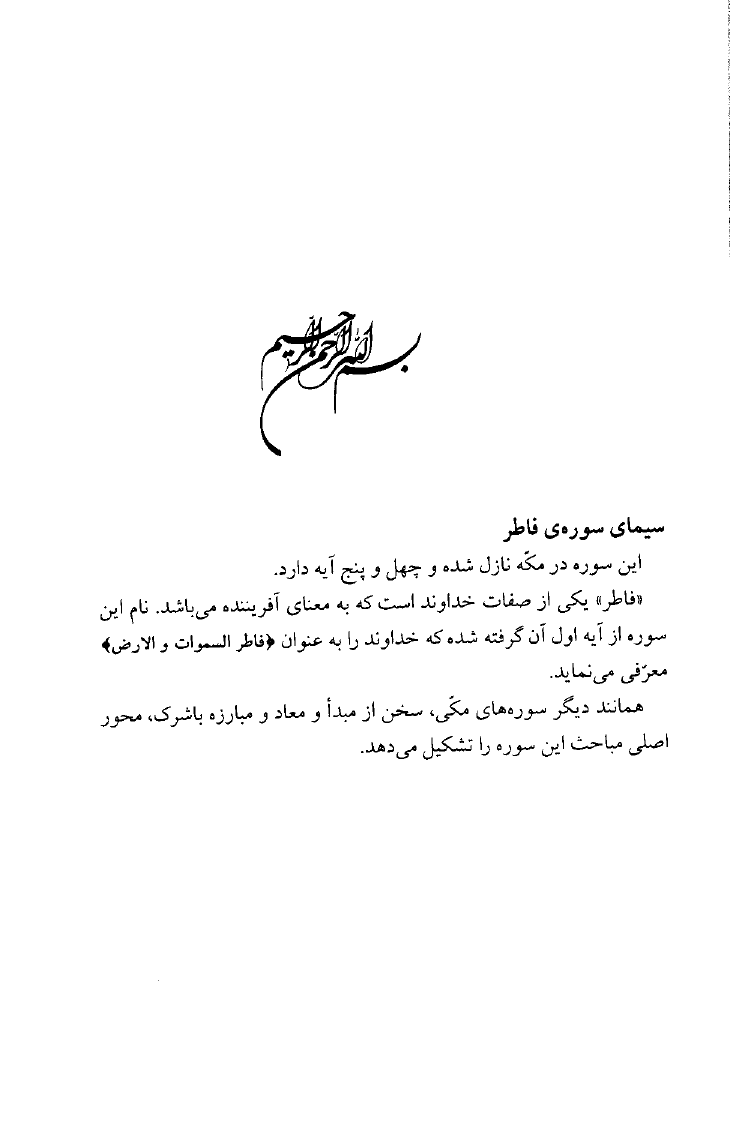 بسم الله الرحمن الرحیم
سیمای سوره‌ی فاطر
این سوره در مکّه نازل شده و چهل و پنج آیه دارد.
«فاطر» یکی از صفات خداوند است که به معنای آفریننده می‌باشد. نام این
سوره از آیه اول آن گرفته شده که خداوند را به عنوان ﴿فاطر السموات و الارض﴾
معرّفی می‌نماید.
همانند دیگر سوره‌های مکّی، سخن از مبدأ و معاد و مبارزه باشرک، محور
اصلی مباحث این سوره را تشکیل می‌دهد.